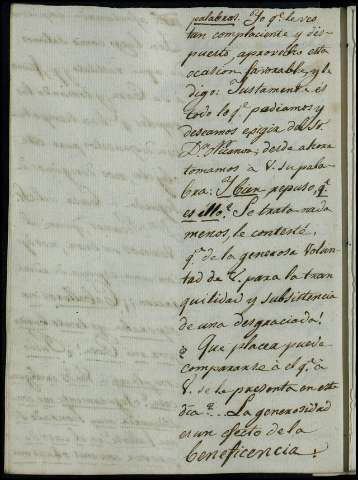 palabras. Yo q.e le veo
tan complaciente y dis-
puesto, aprovecho esta
ocasion favorable, y le
digo: Justamente es
todo lo q.e pediamos y
deseamos exigir del Sr.
Dn. desde ahora
tomamos a V. su pala-
bra. Y bien repuso, q.e
es ello? Se trata nada
menos, le contesté,
q.e de la generosa volun-
tad de V. para la tran-
quilidad y subsistencia
de una desgraciada!
¿ Que placer puede
compararse á el q.e á
V. se le presenta en este
dia?... La generosidad
es un efecto de la
beneficencia.